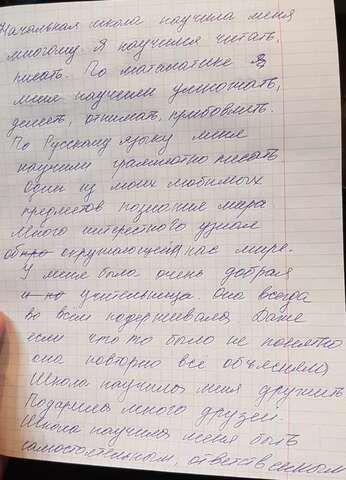 Начальная школа научила меня
многому. Я научился читать,
писать. По математике я
меня научили умножать,
делить, отнимать, прибовлять.
По Русскому языку меня
научили грамотно писать
Один из моих любимых
предметов познание мира
Много интересного узнал
об окружающей нас мире.
У меня была очень добрая
и но учительница. Она всегда
во всем подерживала. Даже
если что то было не понятно
она повторно все объясняла
Школа научила миня дружить
Подарила много друзей.
Школа научила меня быть
самостоятельным, ответственным